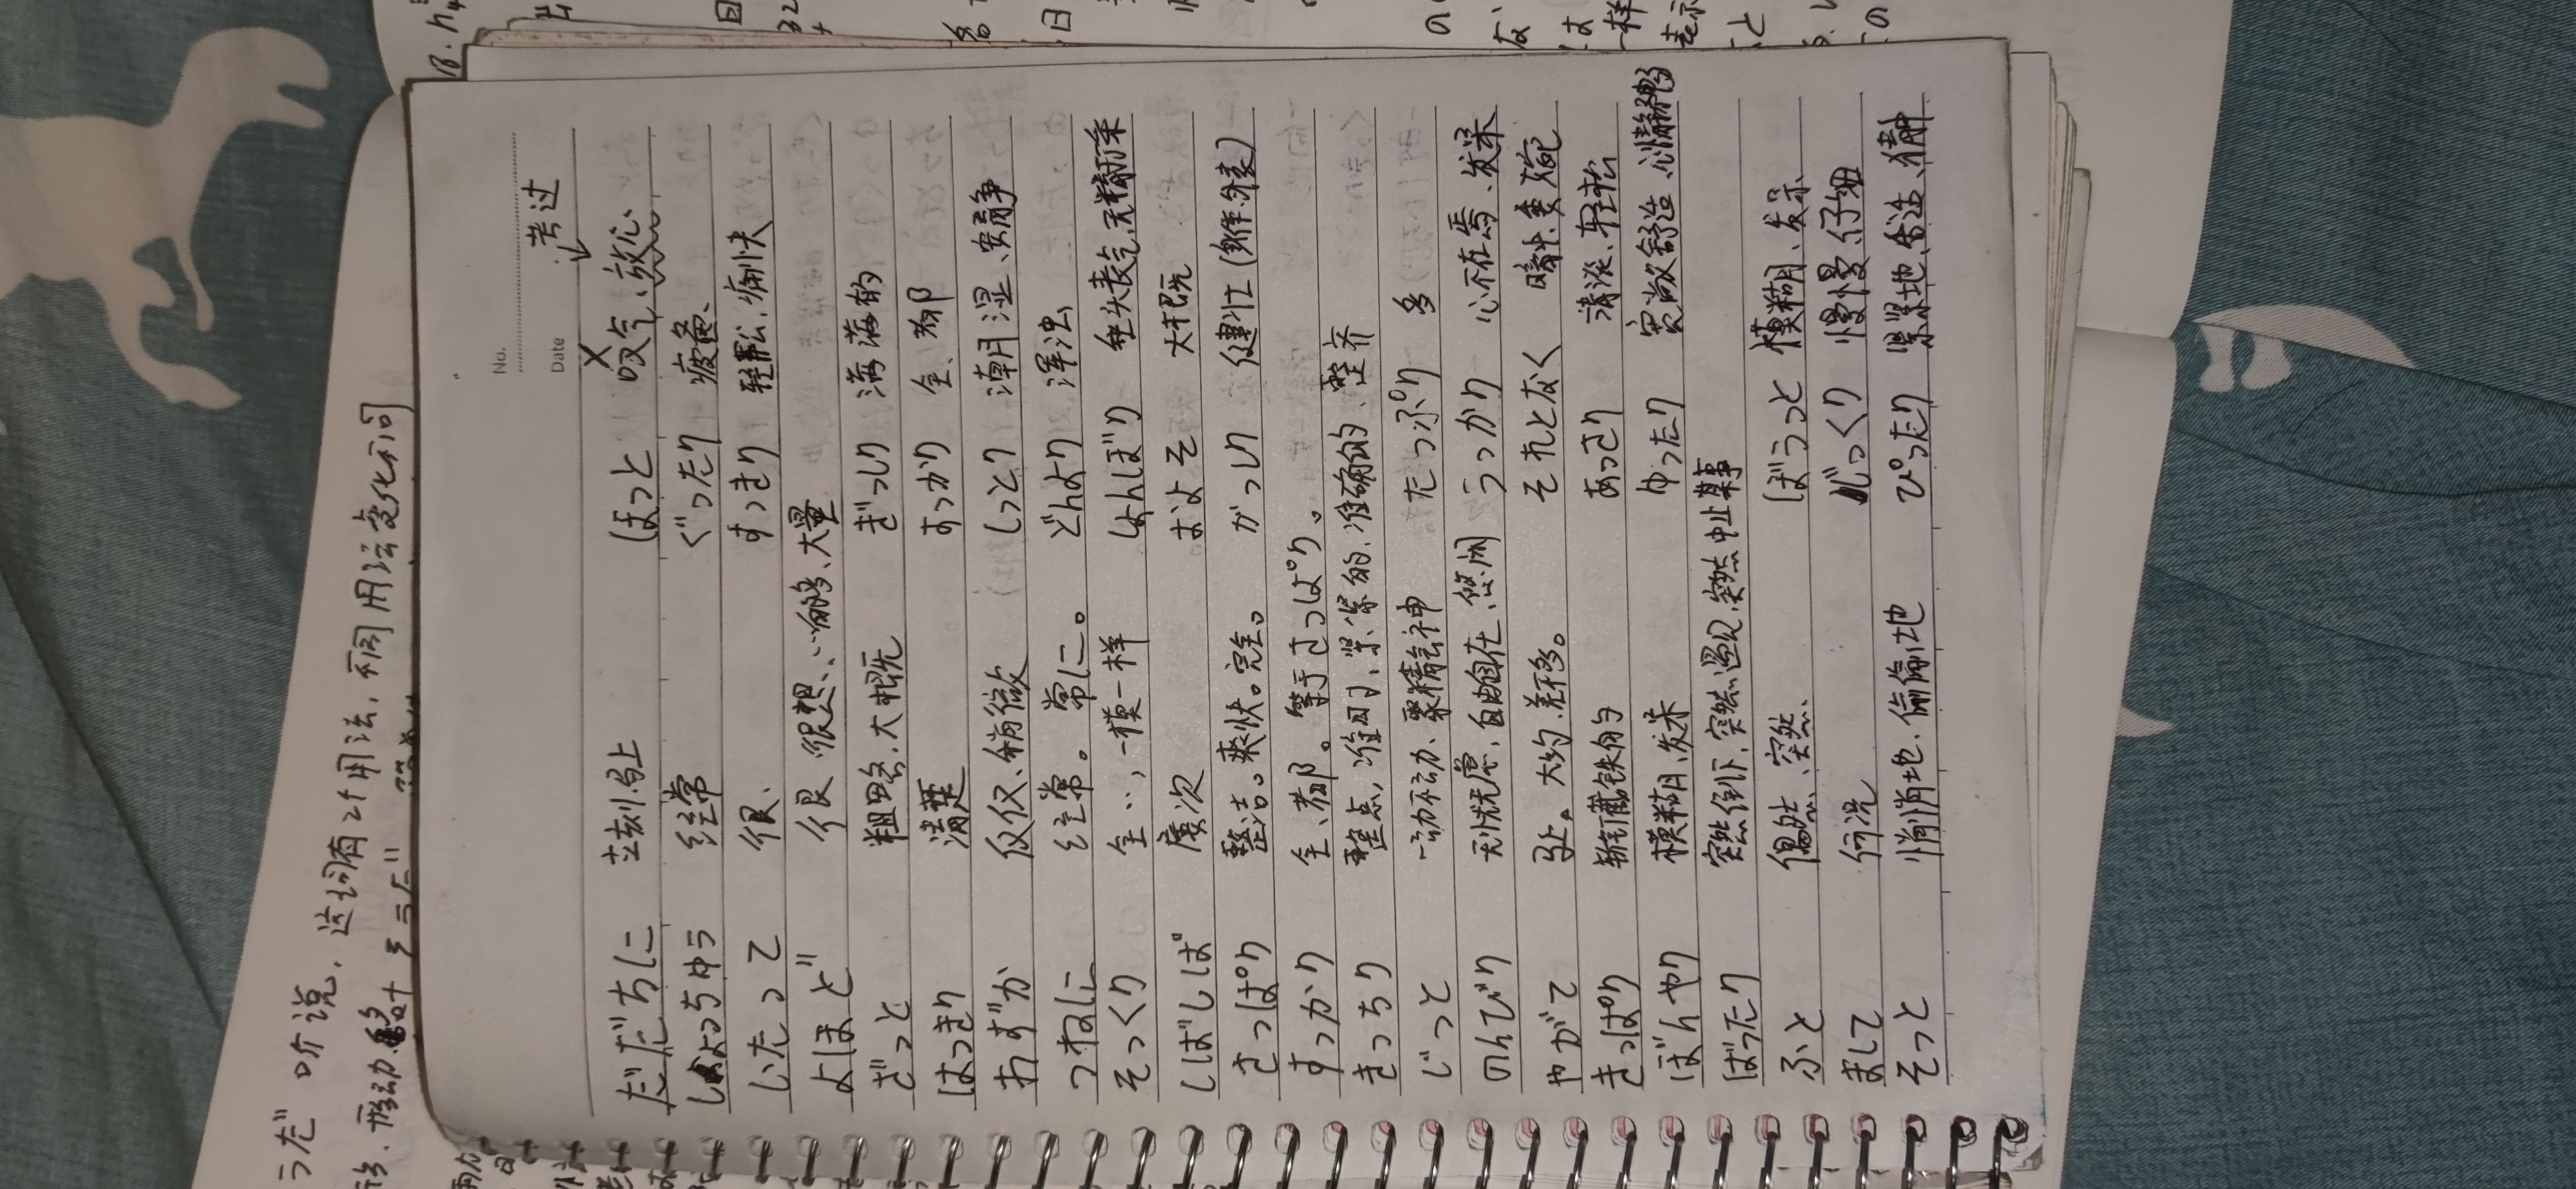 No.
Date
考过
だだちに 立刻.马上 ほっと 叹气、放心
しょっちゅう 经常 ぐったり 疲惫、
いたって 很、 すっきり 轻松、痛快
よほど 很 很想、、、大量
ざっと 粗略、大概 ぎっしり 满满的
はっきり 清楚 すっかり 全、都
わずか 仅仅、稍微 しっとり 潮湿、安静
つねに 经常。常に。 どんより 浑浊
そっくり 全、、一模一样 しょんぼり 垂头丧气、无精打采
しばしば 屡次 およそ 大概
さっぱり 整洁。爽快。完全。 がっしり 健壮
すっかり 全、都。等于さっぱり。
きっちり 整点,准时、紧紧的、准确的、整齐
じっと 一动不动、聚精会神 たっぷり 多
のんびり 无忧无虑,自由自在、悠闲 うっかり 心不在焉、发呆
やがて 马上。大约.差不多。 それとなく 暗中、委婉
きっぱり 斩钉截铁的 あっさり 清淡、轻松
ぼんやり 模糊,发呆 ゆったり 宽敞舒适
ばったり 突然倒下、突然遇见,突然中止某事
ふと 偶然、突然、 ぼうっと 模糊、发呆、
まして 何况 じっくり 慢慢、仔细
そっと 悄悄地、偷偷地 ぴったり 紧紧地、合适、
うだ 吶说,这词有2个用法,不同用法变化不同